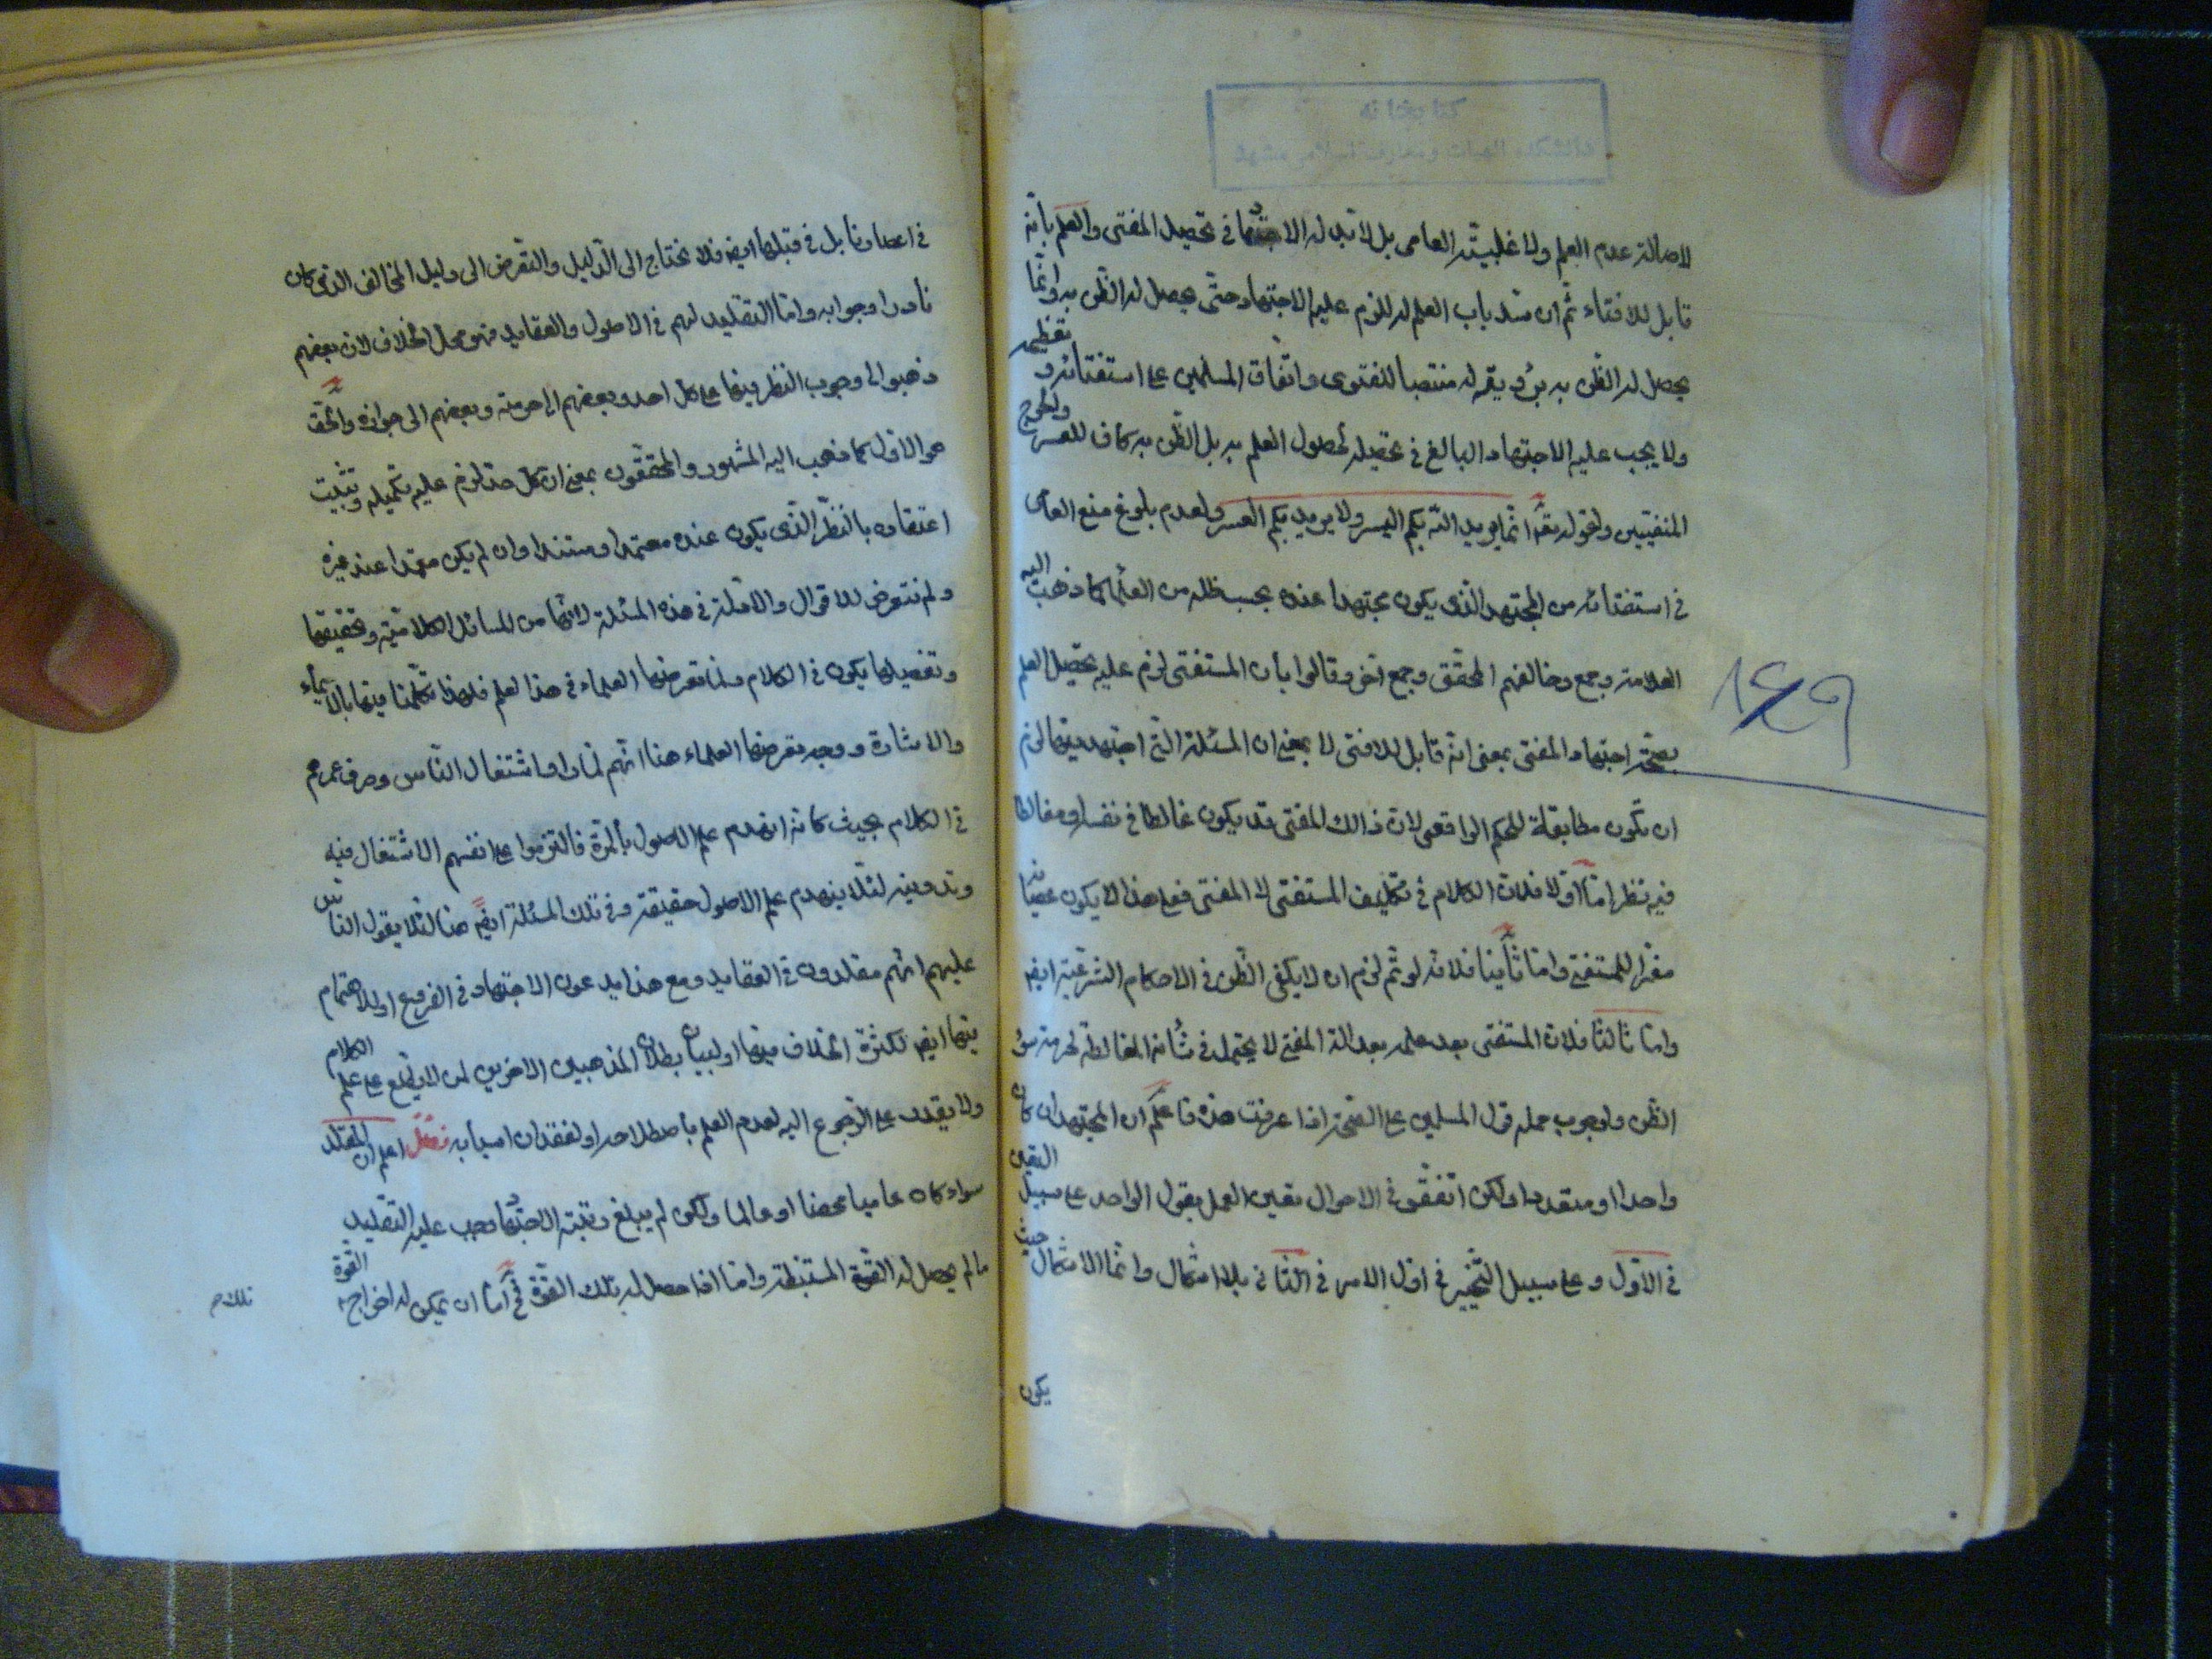 كتابخانه
دانشكده الهيات ومعارف اسلامى مشهد
لاصالة عدم العلم ولا غلبية العامى بل لابد له الاجتهاد فى تحصيل المفتى والعلم بانه
قابل للافتاء ثم ان سد باب العلم له للزم عليه الاجتهاد حتى يحصل له الظن به وانما
يحصل له الظن به برؤيته له منتصبا للفتوى واتفاق المسلمين على استفتائه و تعظيمه
ولا يجب عليه الاجتهاد البالغ فى تحصيله لحصول العلم به بل الظن به كاف للعسر والحرج
المنفيين ولقوله تعه انما يريد الله بكم اليسر ولا يريد بكم العسر ولعدم بلوغ منع العامى
فى استفتائه من المجتهد الذى يكون مجتهدا عنده بحسب ظنه من العلما كما ذهب اليه
العلامة وجمع وخالفهم المحقق وجمع اخر وقالوا بأن المستفتى لزم عليه تحصيل العلم
بصحة اجتهاد المفتى بمعنى انه قابل للافتى لا بمعنى ان المسئلة التى اجتهد فيها لزم
ان تكون مطابقة للحكم الواقعى لان ذالك المفتى قد يكون غالطا فى نفسه او مغالطا
فيه نظر اما اولا فلان الكلام فى تكليف المستفتى لا المفتى فعلى هذا لا يكون عصيانه
مضرا للمستفتى واما ثانيا فلانه لو تم لزم ان لا يكفى الظن فى الاحكام الشرعية ايضا
واما ثالثا فلان المستفتى بعد علمه بعدالة المفتى لا يحتمل فى شأنه المغالطة لحرمة سوء
الظن ولوجوب حمله قول المسلمين على الصحة اذا عرفت هذه فاعلم ان المجتهد ان كان
واحدا او متعددا ولكن اتفقوا فى الاحوال تعين العمل بقول الواحد على سبيل التعين
فى الاول وعلى سبيل التخيير فى اول الامر فى الثانى بلا اشكال وانما الاشكال حيث
يكون
١٤٩
فى اعصارنا بل فى قبلها ايضا فلا نحتاج الى الدليل والتعرض الى دليل المخالف الذى كان
نادرا وجوابه واما التقليد لهم فى الاصول والعقايد فهو محل الخلاف لان بعضهم
ذهبوا الى وجوب النظر فيها على كل احد وبعضهم الى حرمته وبعضهم الى جوازه والحق
هو الاول كما ذهب اليه المشهور والمحققون بمعنى ان كل احد لزم عليه تكميله وتثبيت
اعتقاده بالنظر الذى يكون عنده معتمدا ومستندا وان لم يكن معتمدا عند غيره
ولم نتعرض للاقوال والادلة فى هذه المسئلة لانها من المسائل الكلامية وتحقيقها
وتفصيلها يكون فى الكلام ولما تعرضها العلماء فى هذا العلم فلهذا تكلمنا فيها بالايماء
والاشارة ووجه تعرضها العلماء هنا انهم لما راوا اشتغال الناس وصرف عمرهم
فى الكلام بحيث كانه انهدم علم الاصول بالمرة فالتزموا على انفسهم الاشتغال فيه
وتدوينه لئلا ينهدم علم الاصول حقيقة وفى تلك المسئلة ايضا هنا لئلا يقول الناس
عليهم انهم مقلدون فى العقايد ومع هذا يدعون الاجتهاد فى الفروع او للاهتمام
فيها ايضا لكثرة الخلاف فيها او لبيان بطلان المذهبين الاخرين لمن لا يطلع على علم الكلام
ولا يقدر على الرجوع اليه لعدم العلم باصطلاحه او لفقدان اسبابه فصل اعلم ان المقلد
سواء كان عاميا محضا او عالما ولكن لم يبلغ رتبة الاجتهاد وجب عليه التقليد
ما لم يحصل له القوة المستنبطة واما اذا حصل له تلك القوة فاما ان يمكن له اخراج القوة
تلك م